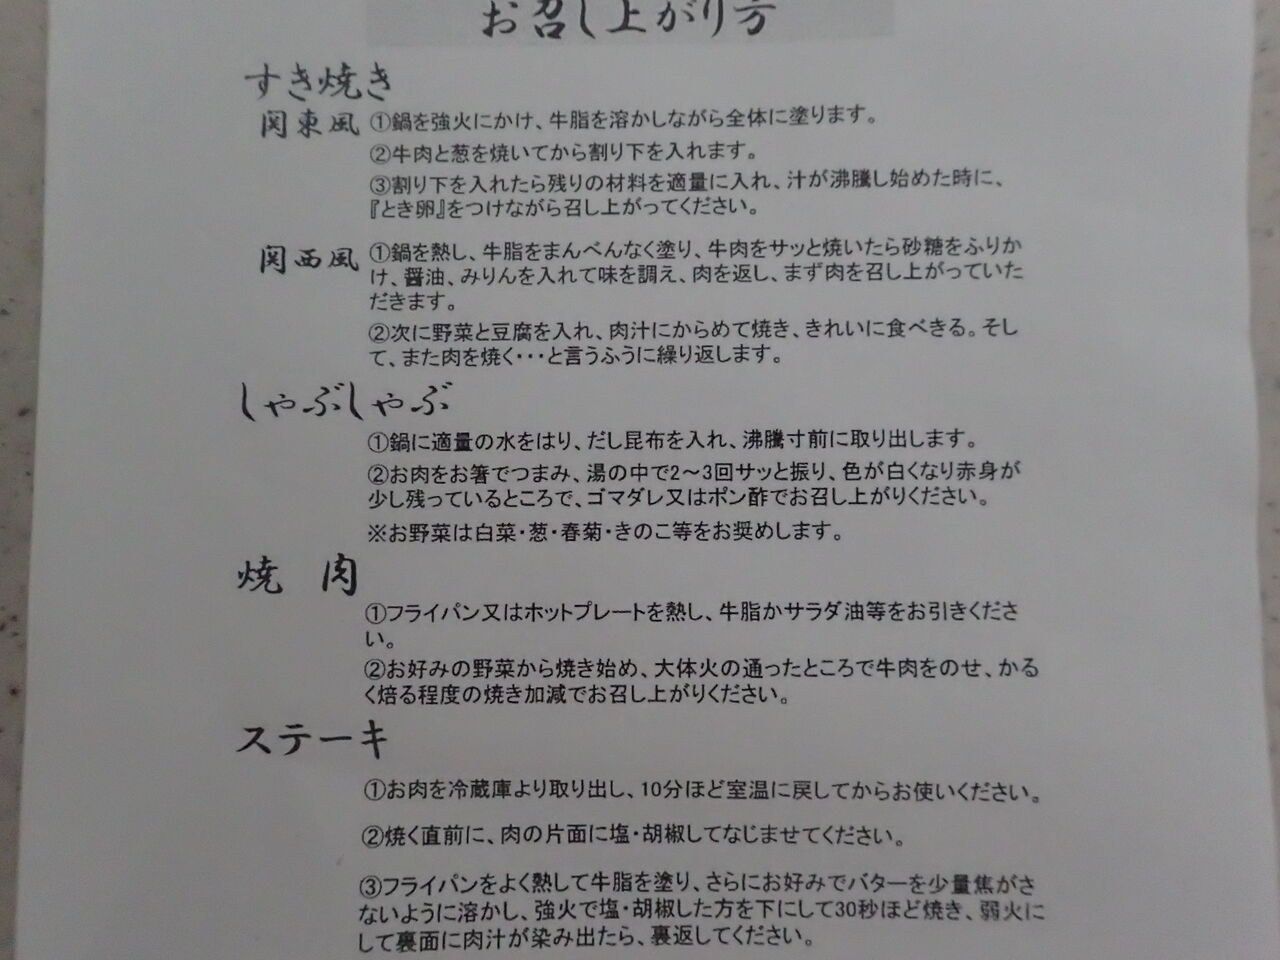 お召し上がり方
すき焼き
関東風 ①鍋を強火にかけ、牛脂を溶かしながら全体に塗ります。
②牛肉と葱を焼いてから割り下を入れます。
③割り下を入れたら残りの材料を適量に入れ、汁が沸騰し始めた時に、
『とき卵』をつけながら召し上がってください。
関西風 ①鍋を熱し、牛脂をまんべんなく塗り、牛肉をサッと焼いたら砂糖をふりか
け、醤油、みりんを入れて味を調え、肉を返し、まず肉を召し上がっていた
だきます。
②次に野菜と豆腐を入れ、肉汁にからめて焼き、きれいに食べきる。そし
て、また肉を焼く・・・と言うふうに繰り返します。
しゃぶしゃぶ
①鍋に適量の水をはり、だし昆布を入れ、沸騰寸前に取り出します。
②お肉をお箸でつまみ、湯の中で2～3回サッと振り、色が白くなり赤身が
少し残っているところで、ゴマダレ又はポン酢でお召し上がりください。
※お野菜は白菜・葱・春菊・きのこ等をお奨めします。
焼 肉
①フライパン又はホットプレートを熱し、牛脂かサラダ油等をお引きくださ
い。
②お好みの野菜から焼き始め、大体火の通ったところで牛肉をのせ、かる
く焙る程度の焼き加減でお召し上がりください。
ステーキ
①お肉を冷蔵庫より取り出し、10分ほど室温に戻してからお使いください。
②焼く直前に、肉の片面に塩・胡椒してなじませてください。
③フライパンをよく熱して牛脂を塗り、さらにお好みでバターを少量焦がさ
ないように溶かし、強火で塩・胡椒した方を下にして30秒ほど焼き、弱火に
して裏面に肉汁が染み出たら、裏返してください。